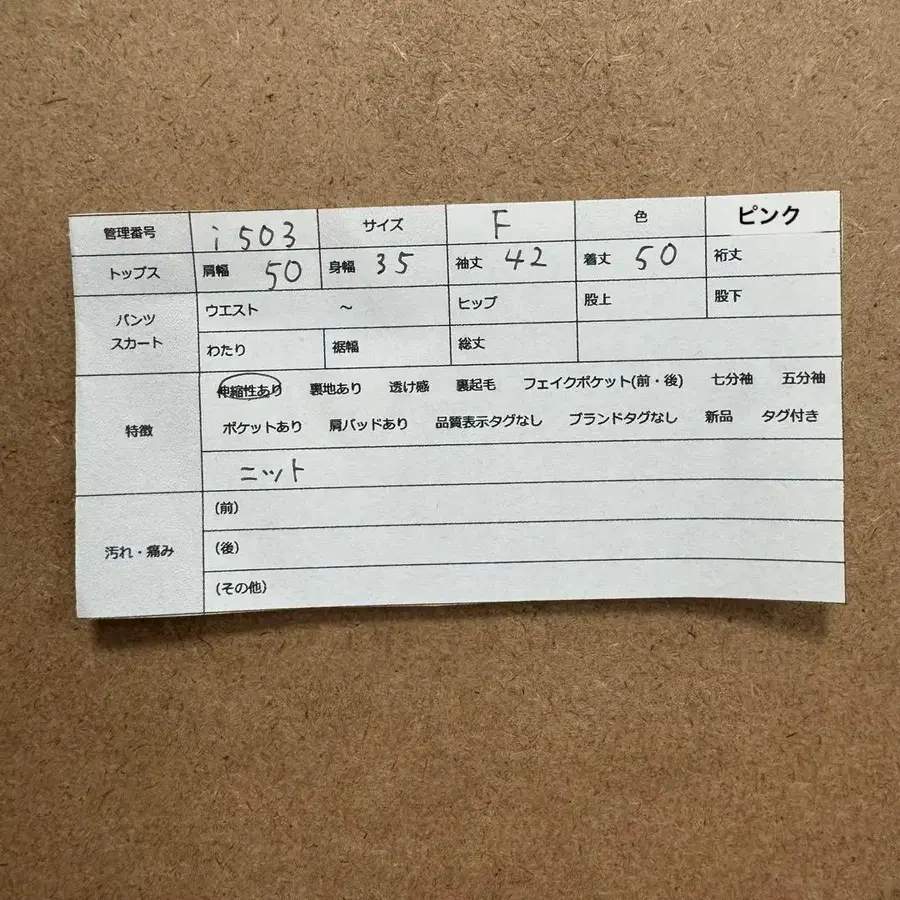 管理番号 i 503 サイズ F 色 ピンク
トップス 肩幅 50 身幅 35 袖丈 42 着丈 50 裄丈
パンツ スカート ウエスト ～ ヒップ 股上 股下
わたり 裾幅 総丈
特徴 伸縮性あり 裏地あり 透け感 裏起毛 フェイクポケット(前・後) 七分袖 五分袖
ポケットあり 肩パッドあり 品質表示タグなし ブランドタグなし 新品 タグ付き
ニット
汚れ・痛み (前)
(後)
(その他)